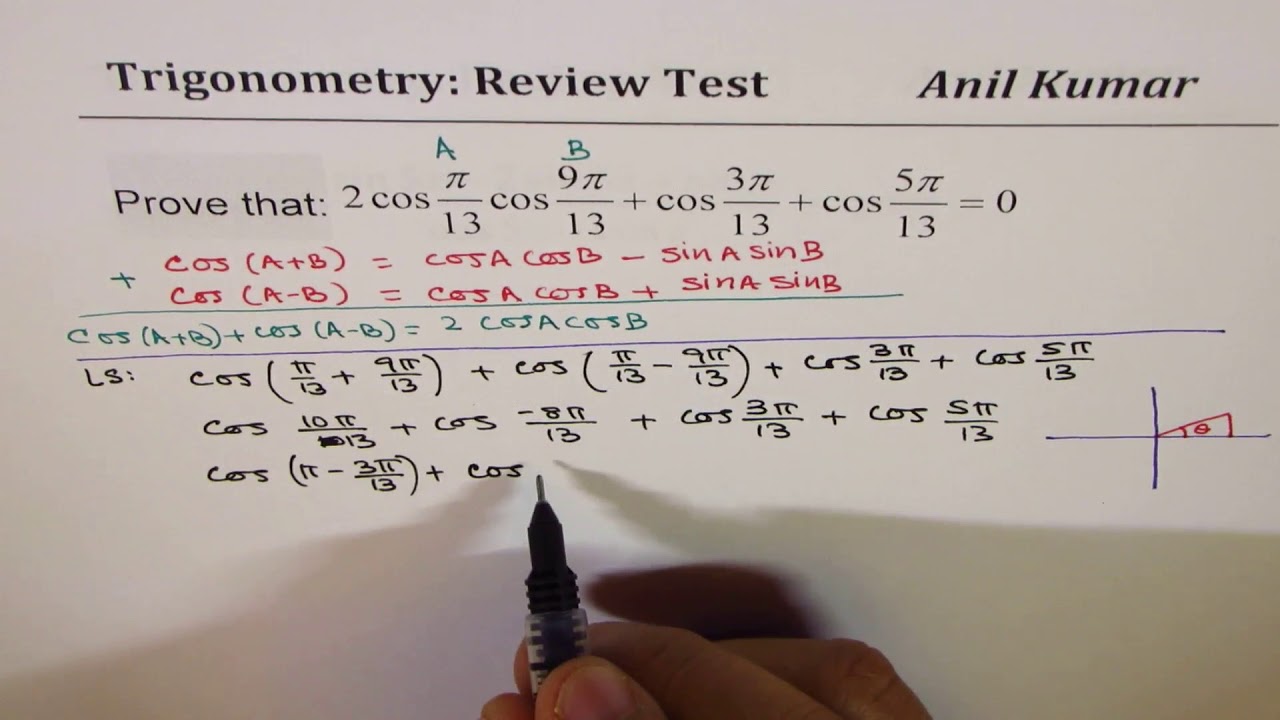 Trigonometry: Review Test Anil Kumar
A B
Prove that: 2 cos π/13 cos 9π/13 + cos 3π/13 + cos 5π/13 = 0
+ cos (A+B) = cosA cosB − sinA sinB
cos (A−B) = cosA cosB + sinA sinB
cos(A+B)+cos(A−B) = 2 cosA cosB
LS: cos (π/13 + 9π/13) + cos (π/13 − 9π/13) + cos 3π/13 + cos 5π/13
cos 10π/13 + cos −8π/13 + cos 3π/13 + cos 5π/13
θ
cos (π − 3π/13) + cos